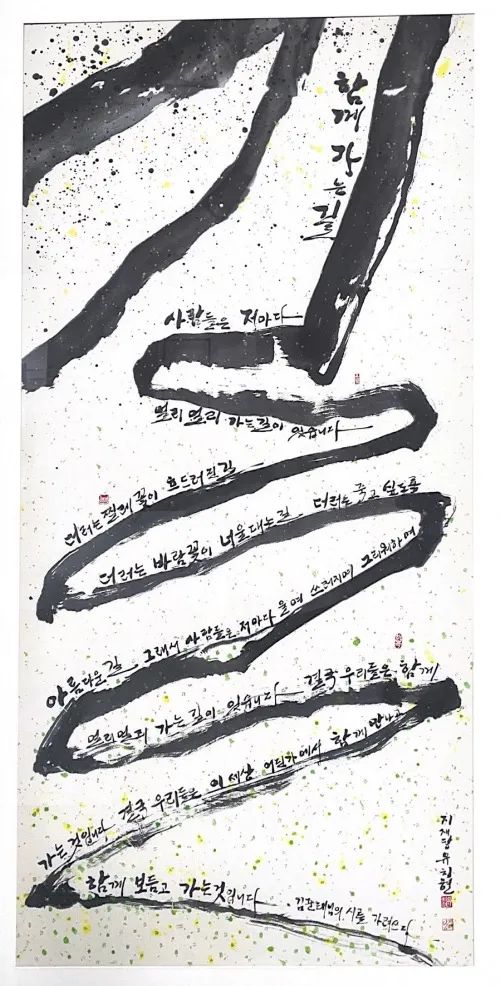 함께 가는 길
사람들은 저마다
멀리멀리 가는 길이 있습니다
더러는 찔레꽃이 흐드러진 길
더러는 바람꽃이 너울대는 길 더러는 죽고 싶도록
아름다운 길 그래서 사람들은 저마다 울며 쓰러지며 그리워하며
멀리멀리 가는 길이 있습니다 결국 우리들은 함께
가는 것입니다 결국 우리들은 이 세상 어딘가에서 함께 만나
함께 보듬고 가는 것입니다
김준태님의 시를 가려쓰다
유치현